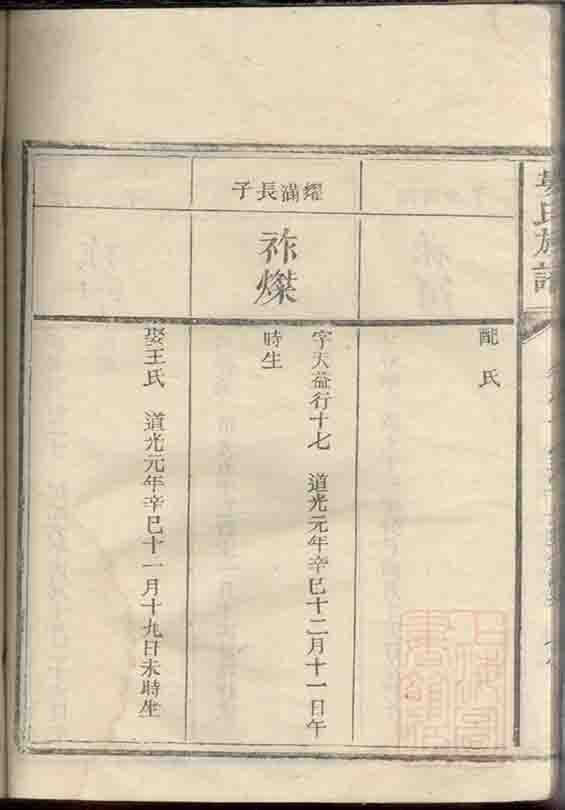 氏族譜
配 氏
耀滿長子
祚燦
字天益行十七 道光元年辛巳十二月十一日午
時生
娶王氏 道光元年辛巳十一月十九日未時生